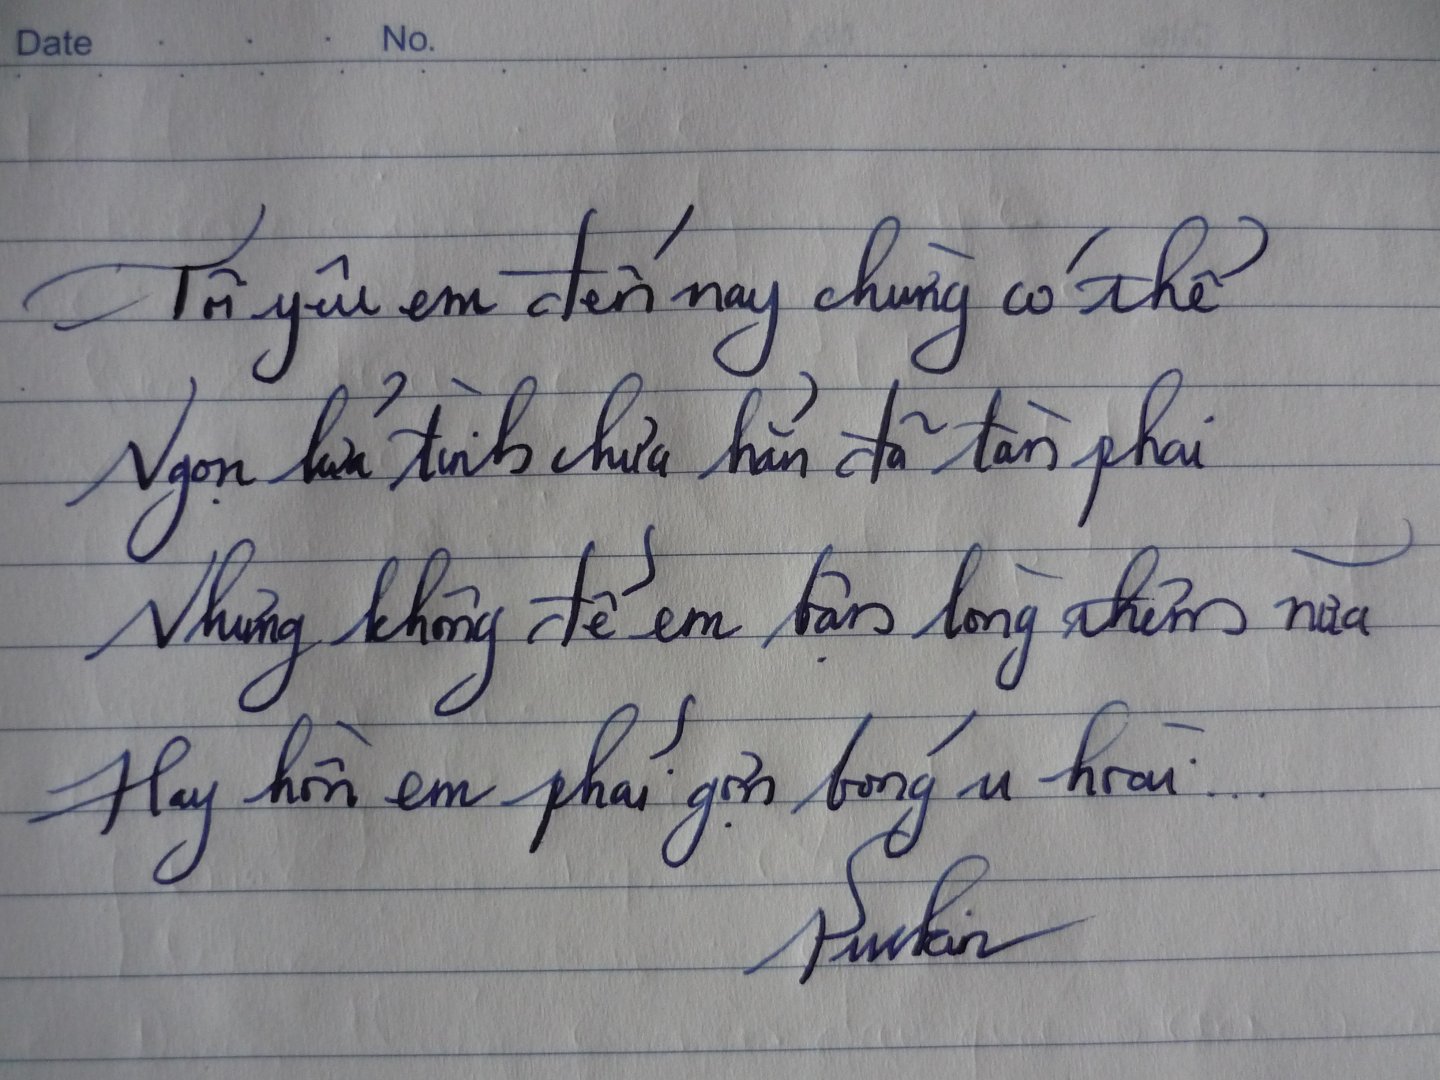 Date No.
Tôi yêu em đến nay chừng có thể
Ngọn lửa tình chưa hẳn đã tàn phai
Nhưng không để em bận lòng thêm nữa
Hay hồn em phải gợn bóng u hoài...
Puskin